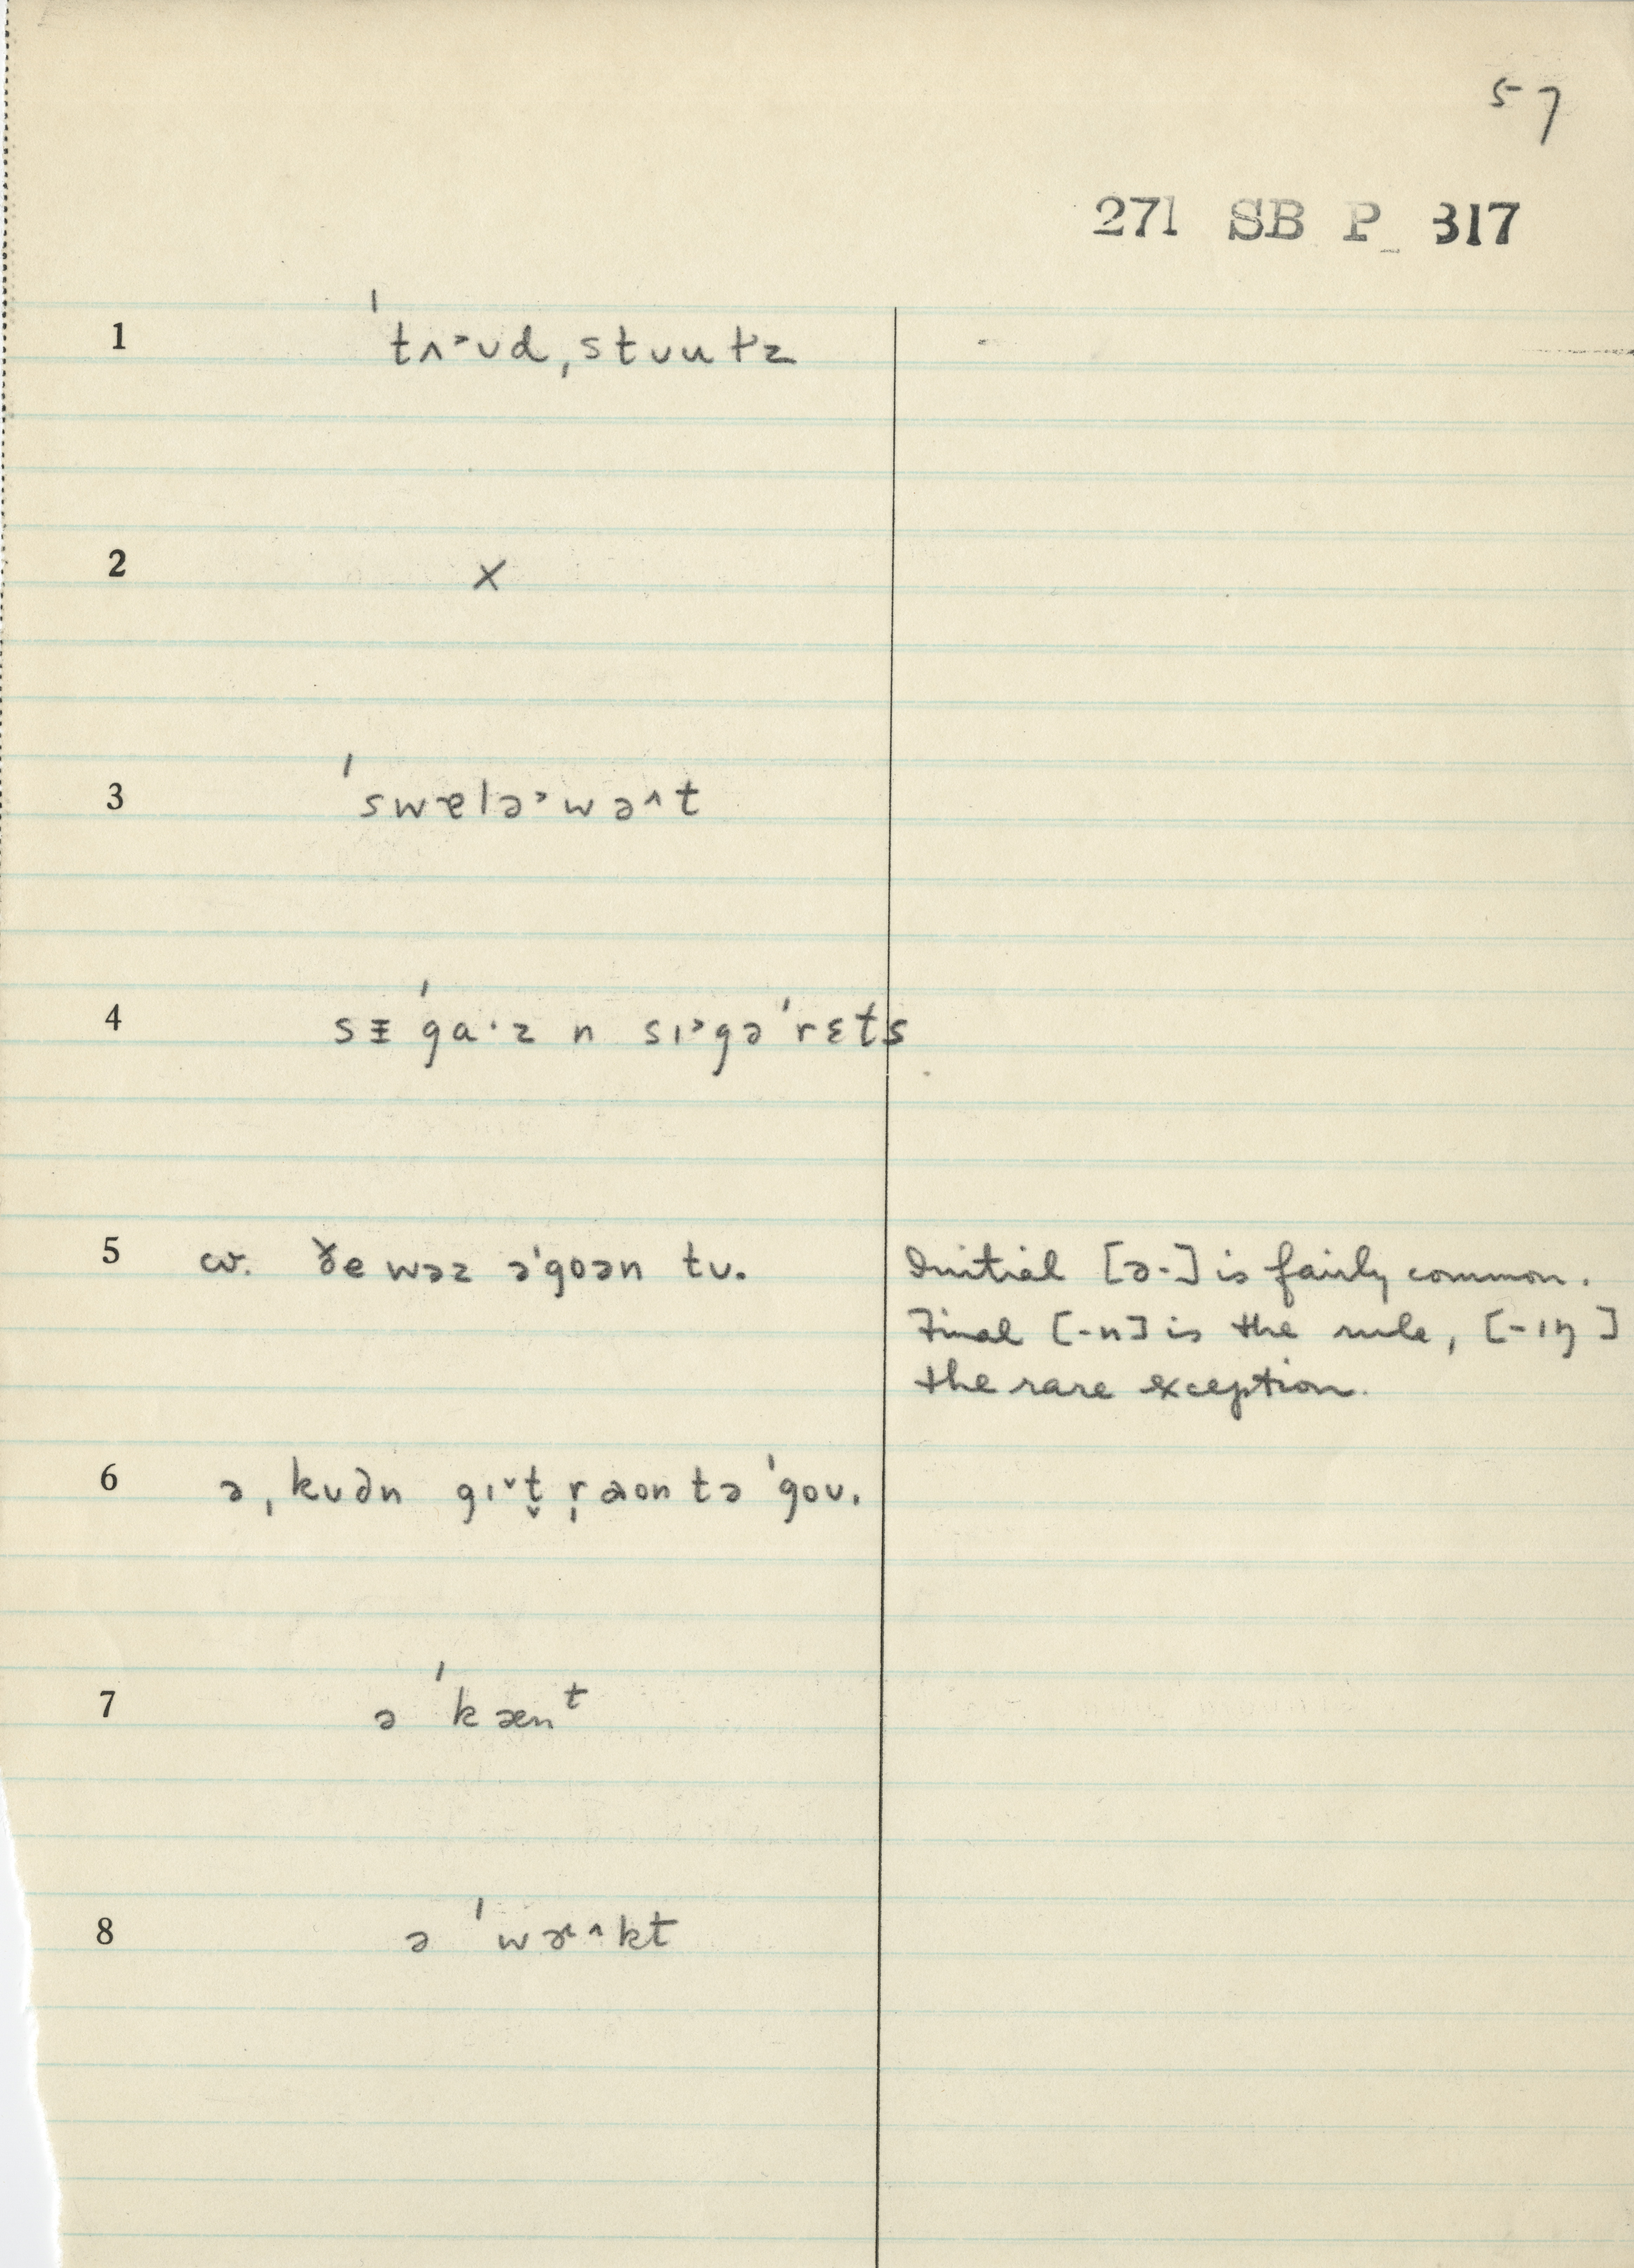 57
271 SB P_ 317
1 ˈtʌ˃ʊd ˌstʊuɫz
2 ×
3 ˈswɐlə˃wə˄t
4 sᵻˈgɑ·z n sɪ˃gəˈrɛts
5 cv. ðe wəz əˈgoən tʊ. Initial [ə-] is fairly common.
Final [-n] is the rule, [-ɪŋ]
the rare exception.
6 ə ˌkʊdn gɪ˅t̬ r̩aon tə ˈgoʊ.
7 ə ˈkænᵗ
8 ə ˈwɚ˄kt